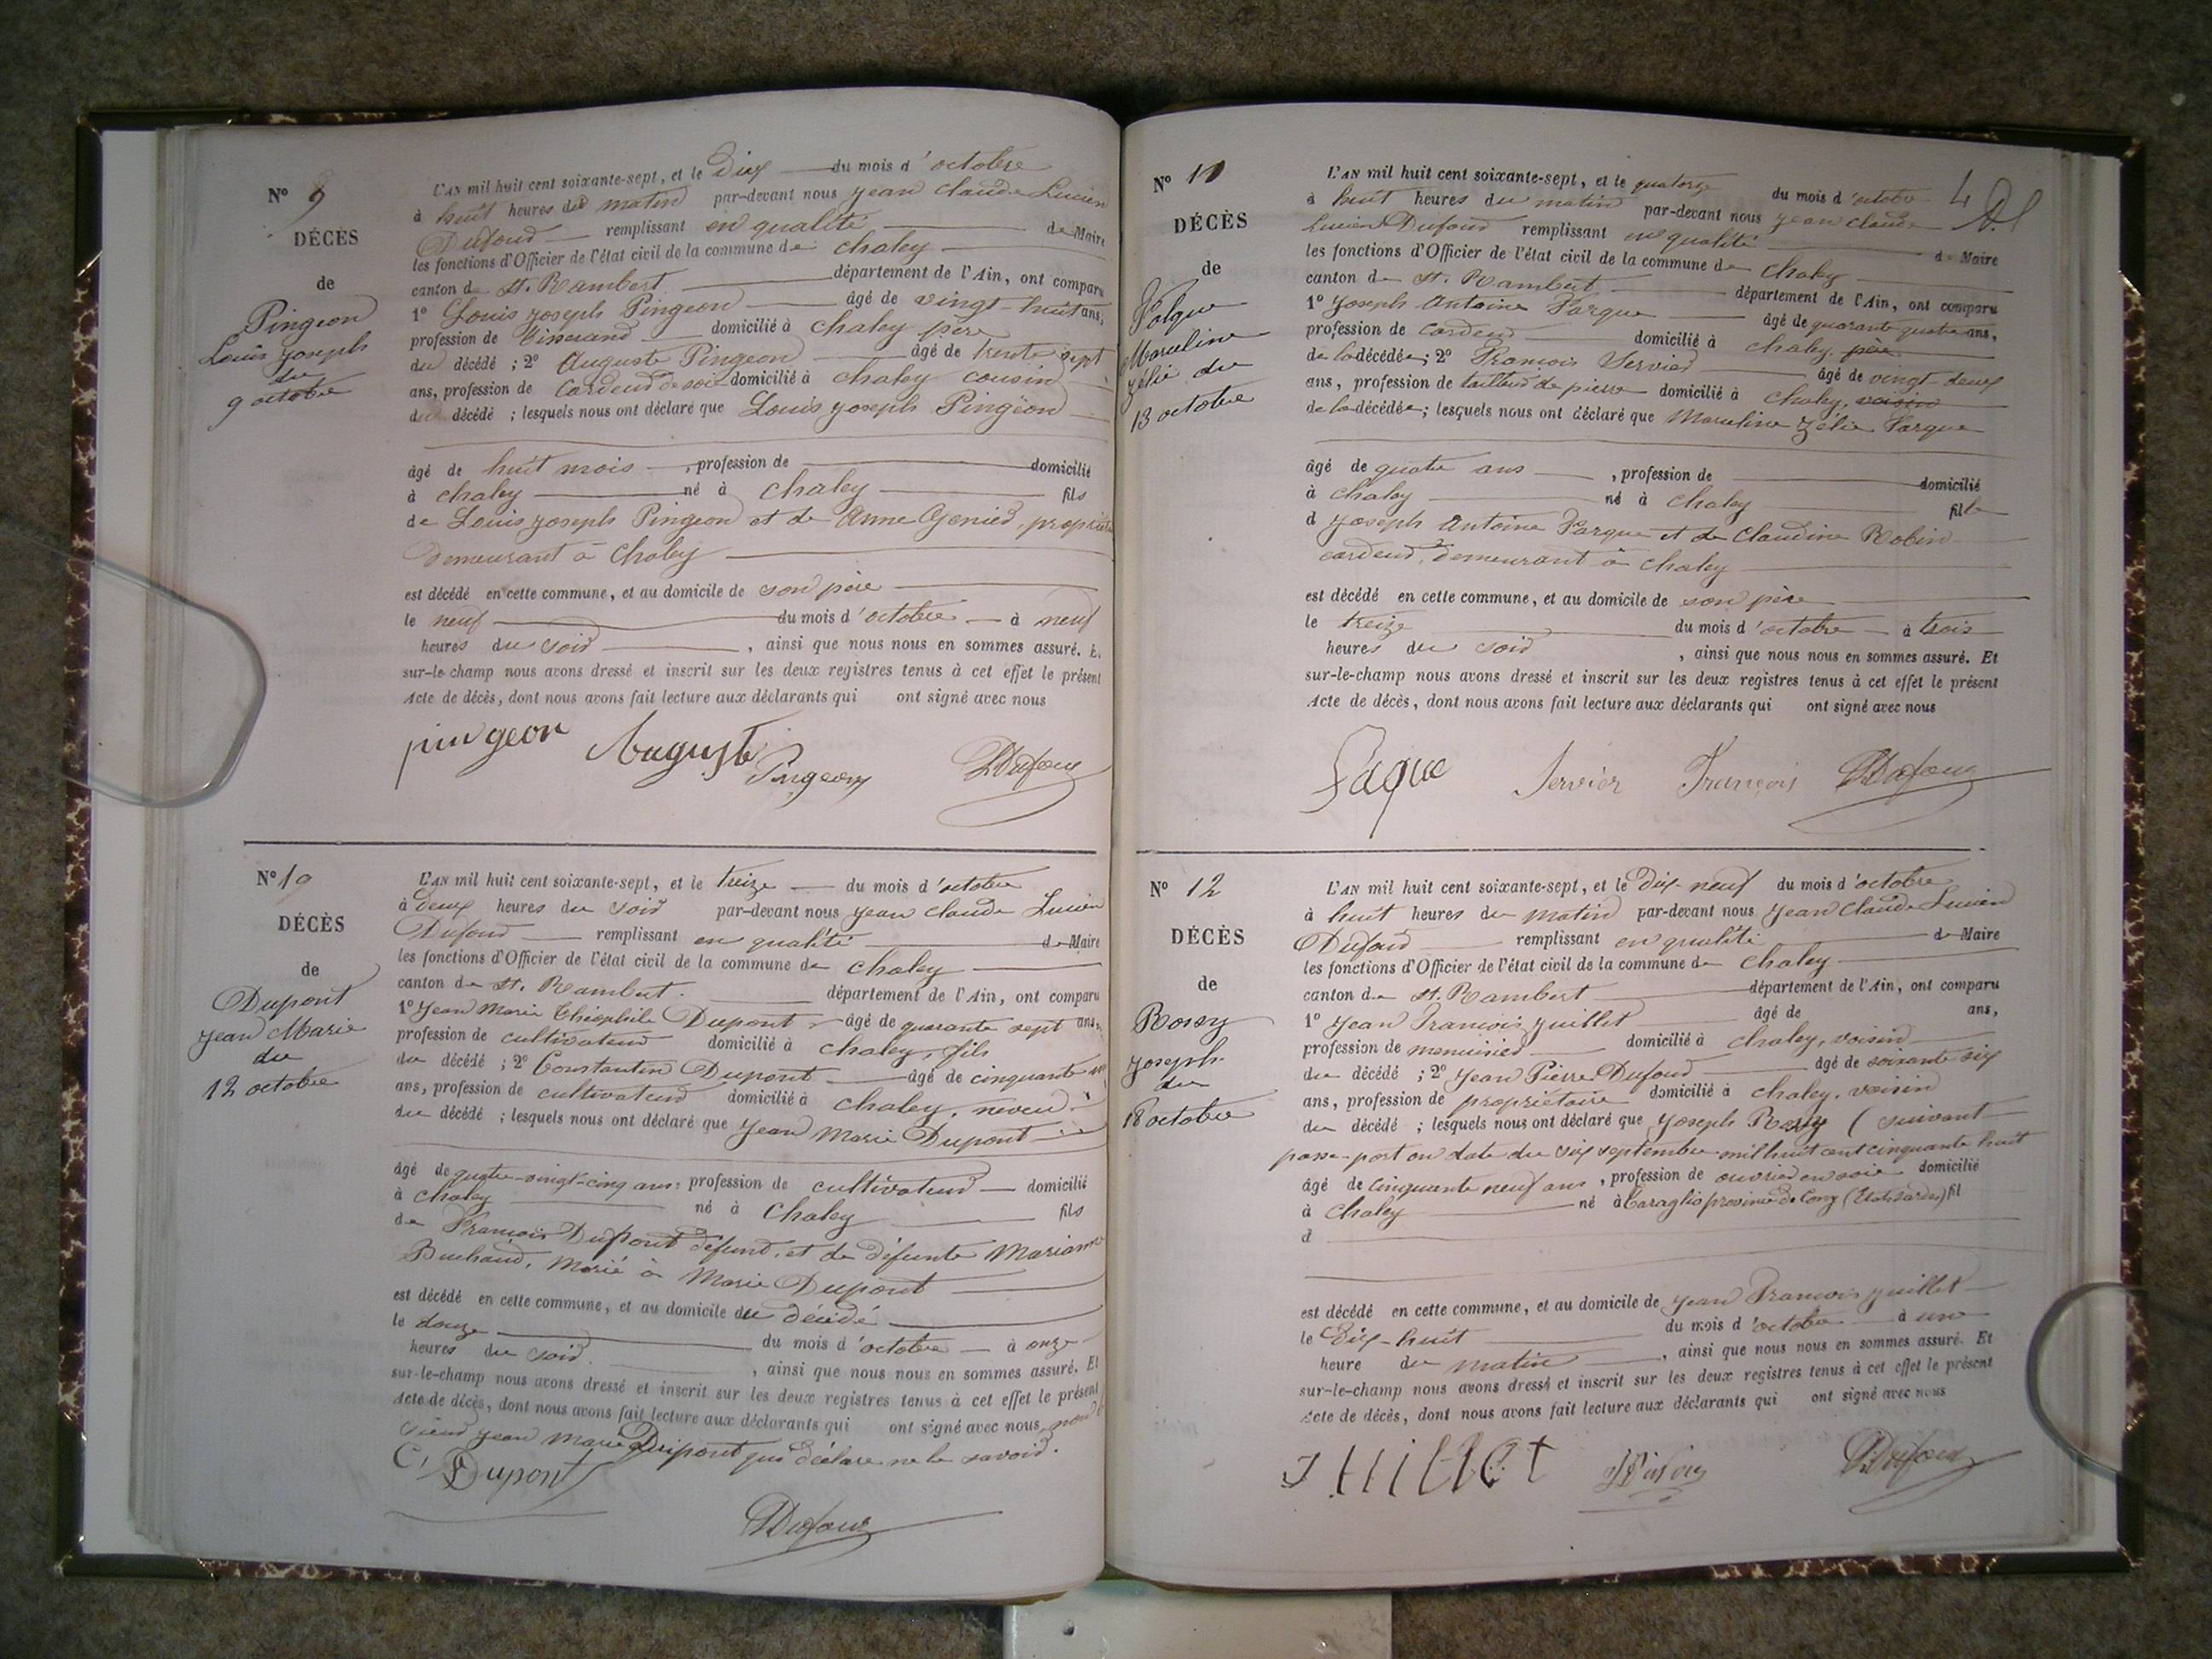 N° 9
DÉCÈS
de
Pingeon
Louis Joseph
du
9 octobre
L'AN mil huit cent soixante-sept, et le Dix du mois d'octobre
à huit heures du matin par-devant nous Jean Claude Lucien
Dufour remplissant en qualité de Maire
les fonctions d'Officier de l'état civil de la commune de Chaley
canton de St. Rambert département de l'Ain, ont comparu
1° Louis Joseph Pingeon âgé de vingt-huit ans,
profession de Tisserand domicilié à Chaley père
du décédé ; 2° Auguste Pingeon âgé de trente sept
ans, profession de Cardeur de soie domicilié à Chaley cousin
du décédé ; lesquels nous ont déclaré que Louis Joseph Pingeon
âgé de huit mois , profession de domicilié
à Chaley né à Chaley fils
de Louis Joseph Pingeon et de Anne Genier,
demeurant à Chaley
est décédé en cette commune, et au domicile de son père
le neuf du mois d'octobre à neuf
heures du soir , ainsi que nous nous en sommes assuré. Et
sur-le-champ nous avons dressé et inscrit sur les deux registres tenus à cet effet le présent
Acte de décès, dont nous avons fait lecture aux déclarants qui ont signé avec nous
pingeon Auguste Pingeon Dufour
N° 10
DÉCÈS
de
Dupont
Jean Marie
du
12 octobre
L'AN mil huit cent soixante-sept, et le treize du mois d'octobre
à deux heures du soir par-devant nous Jean Claude Lucien
Dufour remplissant en qualité de Maire
les fonctions d'Officier de l'état civil de la commune de Chaley
canton de St. Rambert. département de l'Ain, ont comparu
1° Jean Marie Théophile Dupont âgé de quarante sept ans,
profession de cultivateur domicilié à Chaley, fils
du décédé ; 2° Constantin Dupont âgé de cinquante
ans, profession de cultivateur domicilié à Chaley, neveu
du décédé ; lesquels nous ont déclaré que Jean Marie Dupont
âgé de quatre-vingt-cinq ans, profession de cultivateur domicilié
à Chaley né à Chaley fils
de François Dupont défunt, et de défunte Marianne
Buchaud, Marié à Marie Dupont
est décédé en cette commune, et au domicile du décédé
le douze du mois d'octobre à onze
heures du soir. , ainsi que nous nous en sommes assuré. Et
sur-le-champ nous avons dressé et inscrit sur les deux registres tenus à cet effet le présent
Acte de décès, dont nous avons fait lecture aux déclarants qui ont signé avec nous, non le
sieur Jean Marie Dupont qui déclare ne le savoir.
C, Dupont
Dufour
N° 11
DÉCÈS
de
Falque
Marceline
Zélie du
13 octobre
4
L'AN mil huit cent soixante-sept, et le quatorze du mois d'octobre
à huit heures du matin par-devant nous Jean Claude
Lucien Dufour remplissant en qualité de Maire
les fonctions d'Officier de l'état civil de la commune de Chaley
canton de St. Rambert département de l'Ain, ont comparu
1° Joseph Antoine Farque âgé de quarante quatre ans,
profession de Cardeur domicilié à Chaley, père
de la décédée ; 2° François Servier âgé de vingt-deux
ans, profession de tailleur de pierre domicilié à Chaley, voisin
de la décédée ; lesquels nous ont déclaré que Marceline Zélie Farque
âgé de quatre ans , profession de domicilié
à Chaley né à Chaley fille
d Joseph Antoine Farque et de Claudine Robin
cardeurs, demeurant à Chaley
est décédé en cette commune, et au domicile de son père
le treize du mois d'octobre à trois
heures du soir , ainsi que nous nous en sommes assuré. Et
sur-le-champ nous avons dressé et inscrit sur les deux registres tenus à cet effet le présent
Acte de décès, dont nous avons fait lecture aux déclarants qui ont signé avec nous
Faque Servier François Dufour
N° 12
DÉCÈS
de
Rossy
Joseph
du
18 octobre
L'AN mil huit cent soixante-sept, et le dix-neuf du mois d'octobre
à huit heures du matin par-devant nous Jean Claude Lucien
Dufour remplissant en qualité de Maire
les fonctions d'Officier de l'état civil de la commune de Chaley
canton de St. Rambert département de l'Ain, ont comparu
1° Jean François Juillet âgé de ans,
profession de menuisier domicilié à Chaley, voisin
du décédé ; 2° Jean Pierre Dufour âgé de soixante-six
ans, profession de propriétaire domicilié à Chaley, voisin
du décédé ; lesquels nous ont déclaré que Joseph Rossy (suivant
passe-port en date du six septembre mil huit cent cinquante huit
âgé de cinquante neuf ans , profession de ouvrier en soie domicilié
à Chaley né à Caraglio province de Cony (Etats Sardes) fil
d
est décédé en cette commune, et au domicile de Jean François Juillet
le Dix-huit du mois d'octobre à une
heure du matin , ainsi que nous nous en sommes assuré. Et
sur-le-champ nous avons dressé et inscrit sur les deux registres tenus à cet effet le présent
Acte de décès, dont nous avons fait lecture aux déclarants qui ont signé avec nous
Juillet Dufour Dufour